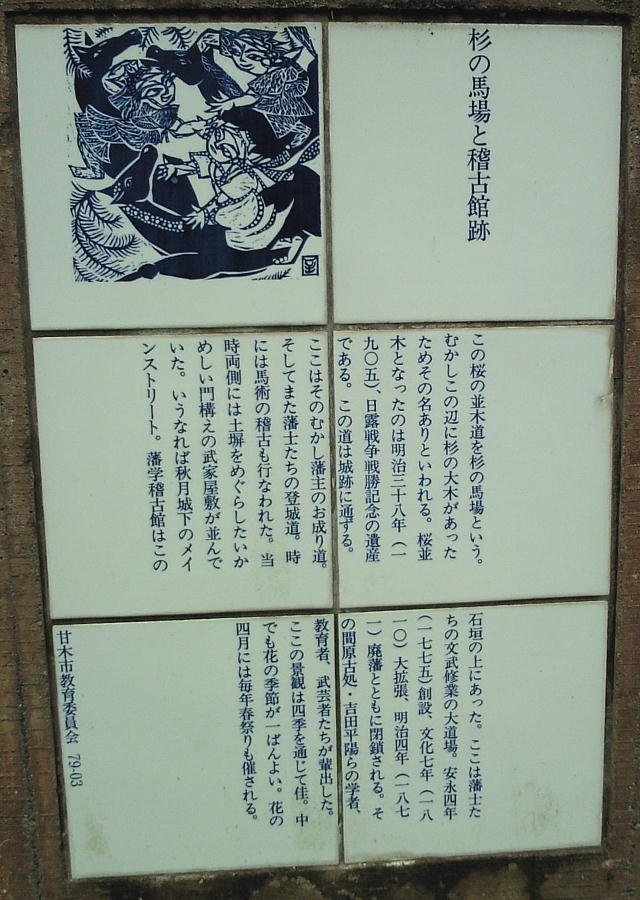 杉の馬場と稽古館跡
この桜の並木道を杉の馬場という。
むかしこの辺に杉の大木があった
ためその名ありといわれる。桜並
木となったのは明治三十八年（一
九〇五）、日露戦争戦勝記念の遺産
である。この道は城跡に通ずる。
ここはそのむかし藩主のお成り道。
そしてまた藩士たちの登城道。時
には馬術の稽古も行なわれた。当
時両側には土塀をめぐらしたいか
めしい門構えの武家屋敷が並んで
いた。いうなれば秋月城下のメイ
ンストリート。藩学稽古館はこの
石垣の上にあった。ここは藩士た
ちの文武修業の大道場。安永四年
（一七七五）創設、文化七年（一八
一〇）大拡張　明治四年（一八七
一）廃藩とともに閉鎖される。そ
の間原古処・吉田平陽らの学者、
教育者、武芸者たちが輩出した。
ここの景観は四季を通じて佳。中
でも花の季節が一ばんよい。花の
四月には毎年春祭りも催される。
甘木市教育委員会　79-03